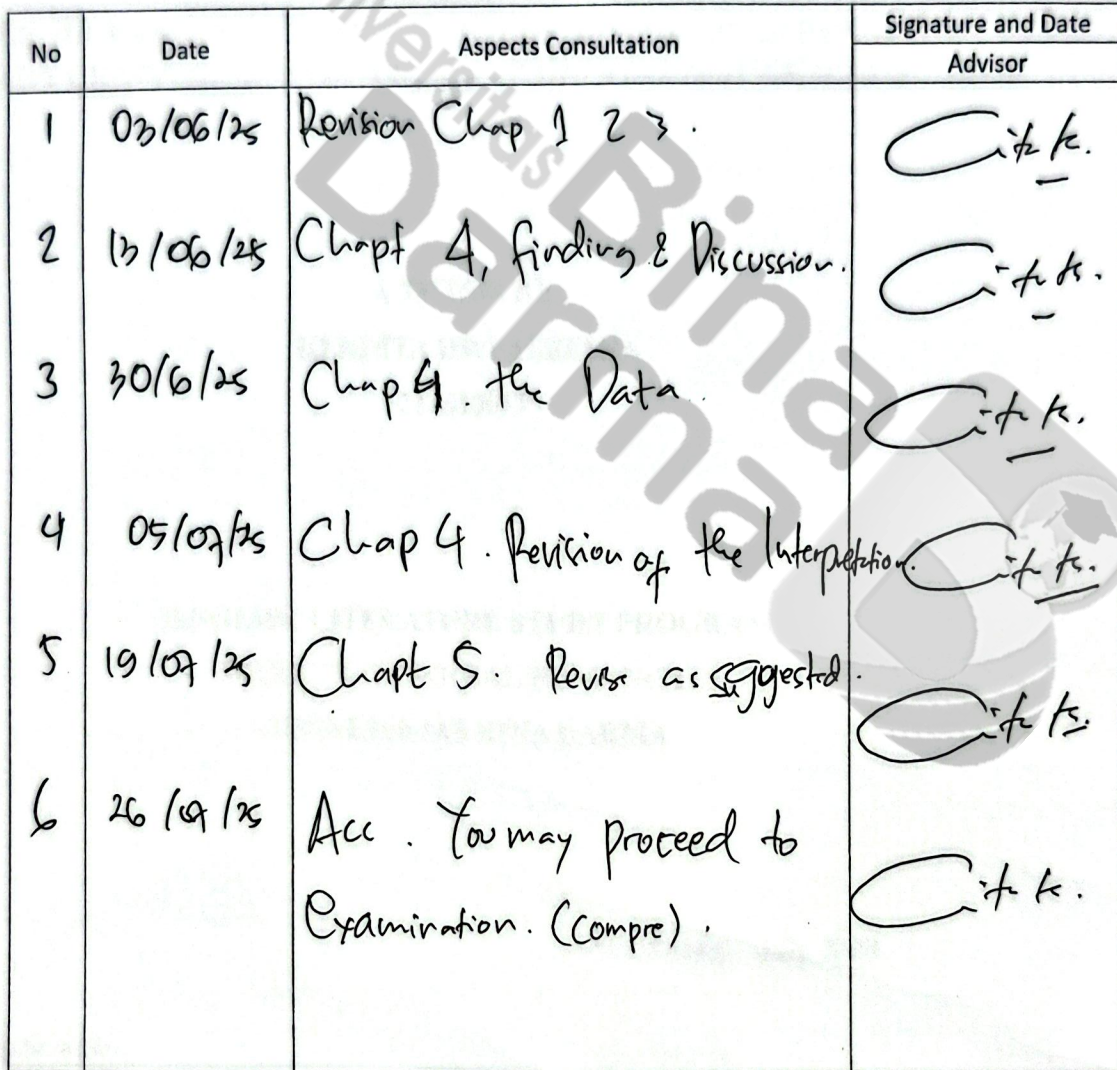 No Date Aspects Consultation Signature and Date
Advisor
1 03/06/25 Revision Chap 1 2 3.
2 13/06/25 Chapt 4, finding & Discussion.
3 30/6/25 Chap 4 the Data.
4 05/07/25 Chap 4. Revision of the Interpretation.
5 19/07/25 Chapt 5. Revise as suggested.
6 26/07/25 Acc. You may proceed to
examination. (compre).
Universitas
Bina
Darma